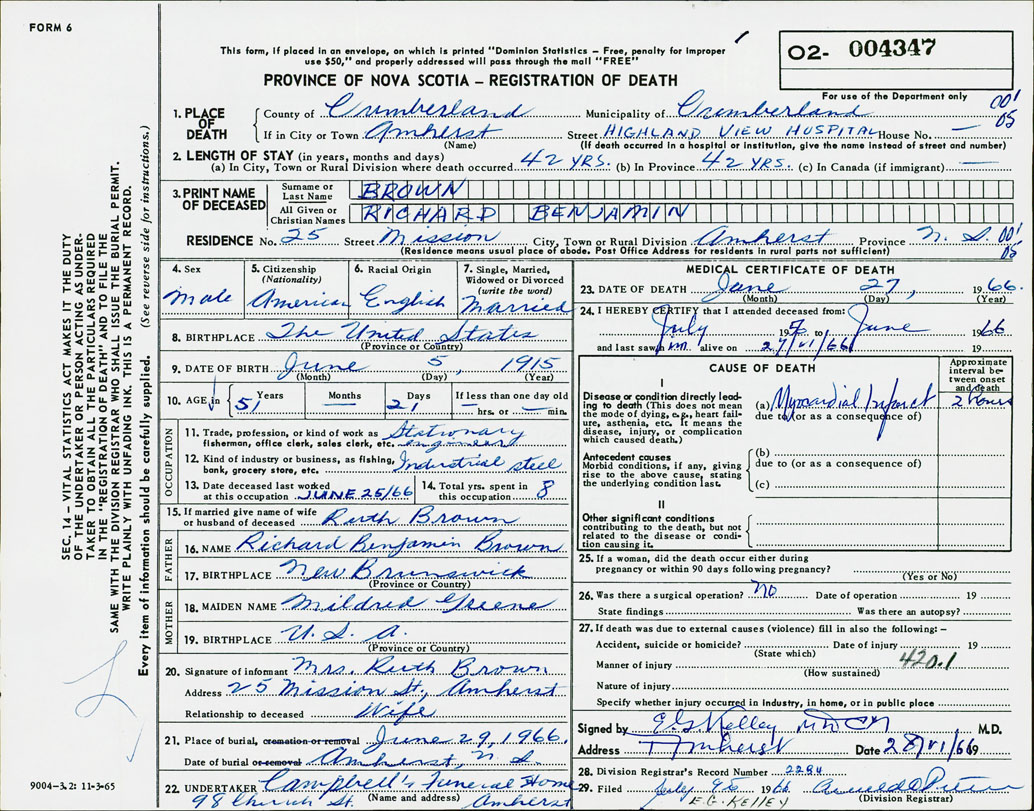 FORM 6
This form, if placed in an envelope, on which is printed "Dominion Statistics – Free, penalty for improper
use $50," and properly addressed will pass through the mail "FREE"
O2- 004347
PROVINCE OF NOVA SCOTIA – REGISTRATION OF DEATH
For use of the Department only
001
05
1. PLACE OF DEATH County of Cumberland Municipality of Cumberland
If in City or Town Amherst Street HIGHLAND VIEW HOSPITAL House No. —
(Name) (If death occurred in a hospital or institution, give the name instead of street and number)
2. LENGTH OF STAY (in years, months and days)
(a) In City, Town or Rural Division where death occurred 42 YRS. (b) In Province 42 YRS. (c) In Canada (if immigrant) —
3. PRINT NAME OF DECEASED Surname or Last Name BROWN
All Given or Christian Names RICHARD BENJAMIN
RESIDENCE No. 25 Street Mission City, Town or Rural Division Amherst Province N. S. 001
05
(Residence means usual place of abode. Post Office Address for residents in rural parts not sufficient)
4. Sex Male
5. Citizenship (Nationality) American
6. Racial Origin English
7. Single, Married, Widowed or Divorced (write the word) Married
8. BIRTHPLACE The United States
(Province or Country)
9. DATE OF BIRTH June 5, 1915
(Month) (Day) (Year)
10. AGE in 51 Years — Months 21 Days If less than one day old — hrs. or — min.
OCCUPATION
11. Trade, profession, or kind of work as Stationary
fisherman, office clerk, sales clerk, etc. engineer
12. Kind of industry or business, as fishing, Industrial steel
bank, grocery store, etc.
13. Date deceased last worked at this occupation JUNE 25/66
14. Total yrs. spent in this occupation 8
15. If married give name of wife or husband of deceased Ruth Brown
FATHER
16. NAME Richard Benjamin Brown
17. BIRTHPLACE New Brunswick
(Province or Country)
MOTHER
18. MAIDEN NAME Mildred Greene
19. BIRTHPLACE U. S. A.
(Province or Country)
20. Signature of informant Mrs. Ruth Brown
Address 25 Mission St., Amherst
Relationship to deceased Wife
21. Place of burial, cremation or removal June 29, 1966.
Date of burial or removal Amherst, N. S.
22. UNDERTAKER Campbell's Funeral Home
(Name and address)
98 Church St. Amherst
MEDICAL CERTIFICATE OF DEATH
23. DATE OF DEATH June 27, 1966.
(Month) (Day) (Year)
24. I HEREBY CERTIFY that I attended deceased from:
July 19 to June 1966
and last saw him alive on 27/VI/66 19
CAUSE OF DEATH
Approximate interval between onset and death
I
Disease or condition directly leading to death (This does not mean the mode of dying, e.g., heart failure, asthenia, etc. It means the disease, injury, or complication which caused death.)
(a) Myocardial Infarct 2 hours
due to (or as a consequence of)
Antecedent causes
Morbid conditions, if any, giving rise to the above cause, stating the underlying condition last.
(b)
due to (or as a consequence of)
(c)
II
Other significant conditions
contributing to the death, but not related to the disease or condition causing it.
25. If a woman, did the death occur either during
pregnancy or within 90 days following pregnancy?
(Yes or No)
26. Was there a surgical operation? No Date of operation 19
State findings Was there an autopsy?
27. If death was due to external causes (violence) fill in also the following: –
Accident, suicide or homicide? Date of injury 19
(State which)
420.1
Manner of injury
(How sustained)
Nature of injury
Specify whether injury occurred in industry, in home, or in public place
Signed by E G Kelley MDCM M.D.
Address Amherst Date 28/VI/66 19
28. Division Registrar's Record Number 2294
29. Filed July 1966
(Division Registrar)
E.G. KELLEY
SEC. 14 – VITAL STATISTICS ACT MAKES IT THE DUTY
OF THE UNDERTAKER OR PERSON ACTING AS UNDER-
TAKER TO OBTAIN ALL THE PARTICULARS REQUIRED
IN THE "REGISTRATION OF DEATH" AND TO FILE THE
SAME WITH THE DIVISION REGISTRAR WHO SHALL ISSUE THE BURIAL PERMIT.
WRITE PLAINLY WITH UNFADING INK. THIS IS A PERMANENT RECORD.
Every item of information should be carefully supplied. (See reverse side for instructions.)
9004-3.2: 11-3-65